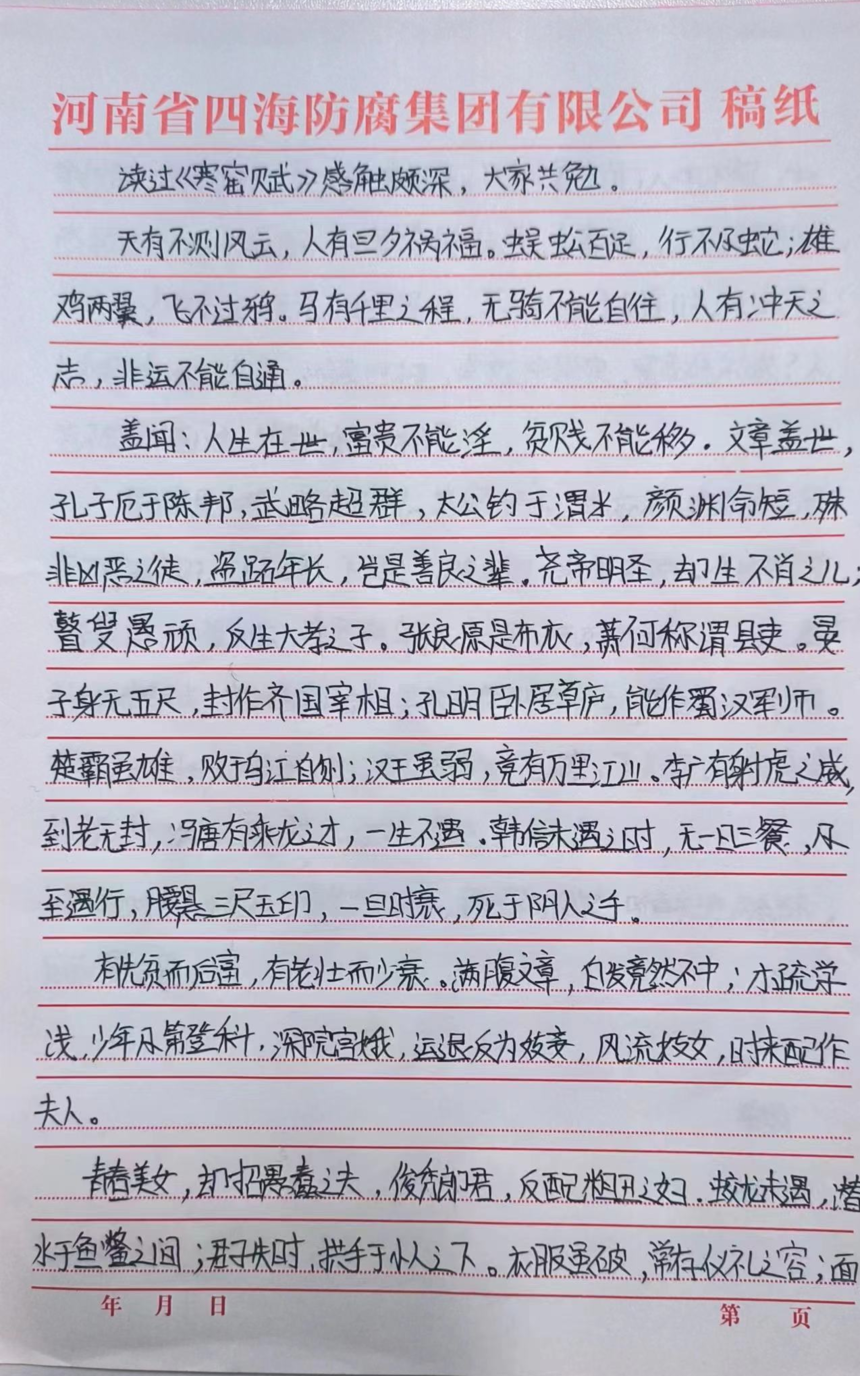 河南省四海防腐集团有限公司 稿纸
读过《寒窑赋》感触颇深，大家共勉。
天有不测风云，人有旦夕祸福。蜈蚣百足，行不及蛇；雄
鸡两翼，飞不过鸦。马有千里之程，无骑不能自往，人有冲天之
志，非运不能自通。
盖闻：人生在世，富贵不能淫，贫贱不能移。文章盖世，
孔子厄于陈邦，武略超群，太公钓于渭水，颜渊命短，殊
非凶恶之徒，盗跖年长，岂是善良之辈。尧帝明圣，却生不肖之儿；
瞽叟愚顽，反生大孝之子。张良原是布衣，萧何称谓县吏。晏
子身无五尺，封作齐国宰相；孔明卧居草庐，能作蜀汉军师。
楚霸虽雄，败于乌江自刎；汉王虽弱，竟有万里江山。李广有射虎之威，
到老无封，冯唐有乘龙之才，一生不遇。韩信未遇之时，无一日三餐，及
至遇行，腰悬三尺玉印，一旦时衰，死于阴人之手。
有先贫而后富，有老壮而少衰。满腹文章，白发竟然不中；才疏学
浅，少年及第登科，深院宫娥，运退反为妓妾，风流妓女，时来配作
夫人。
青春美女，却招愚蠢之夫，俊秀郎君，反配粗丑之妇。蛟龙未遇，潜
水于鱼鳖之间；君子失时，拱手于小人之下。衣服虽破，常存仪礼之容；面
年 月 日
第 页